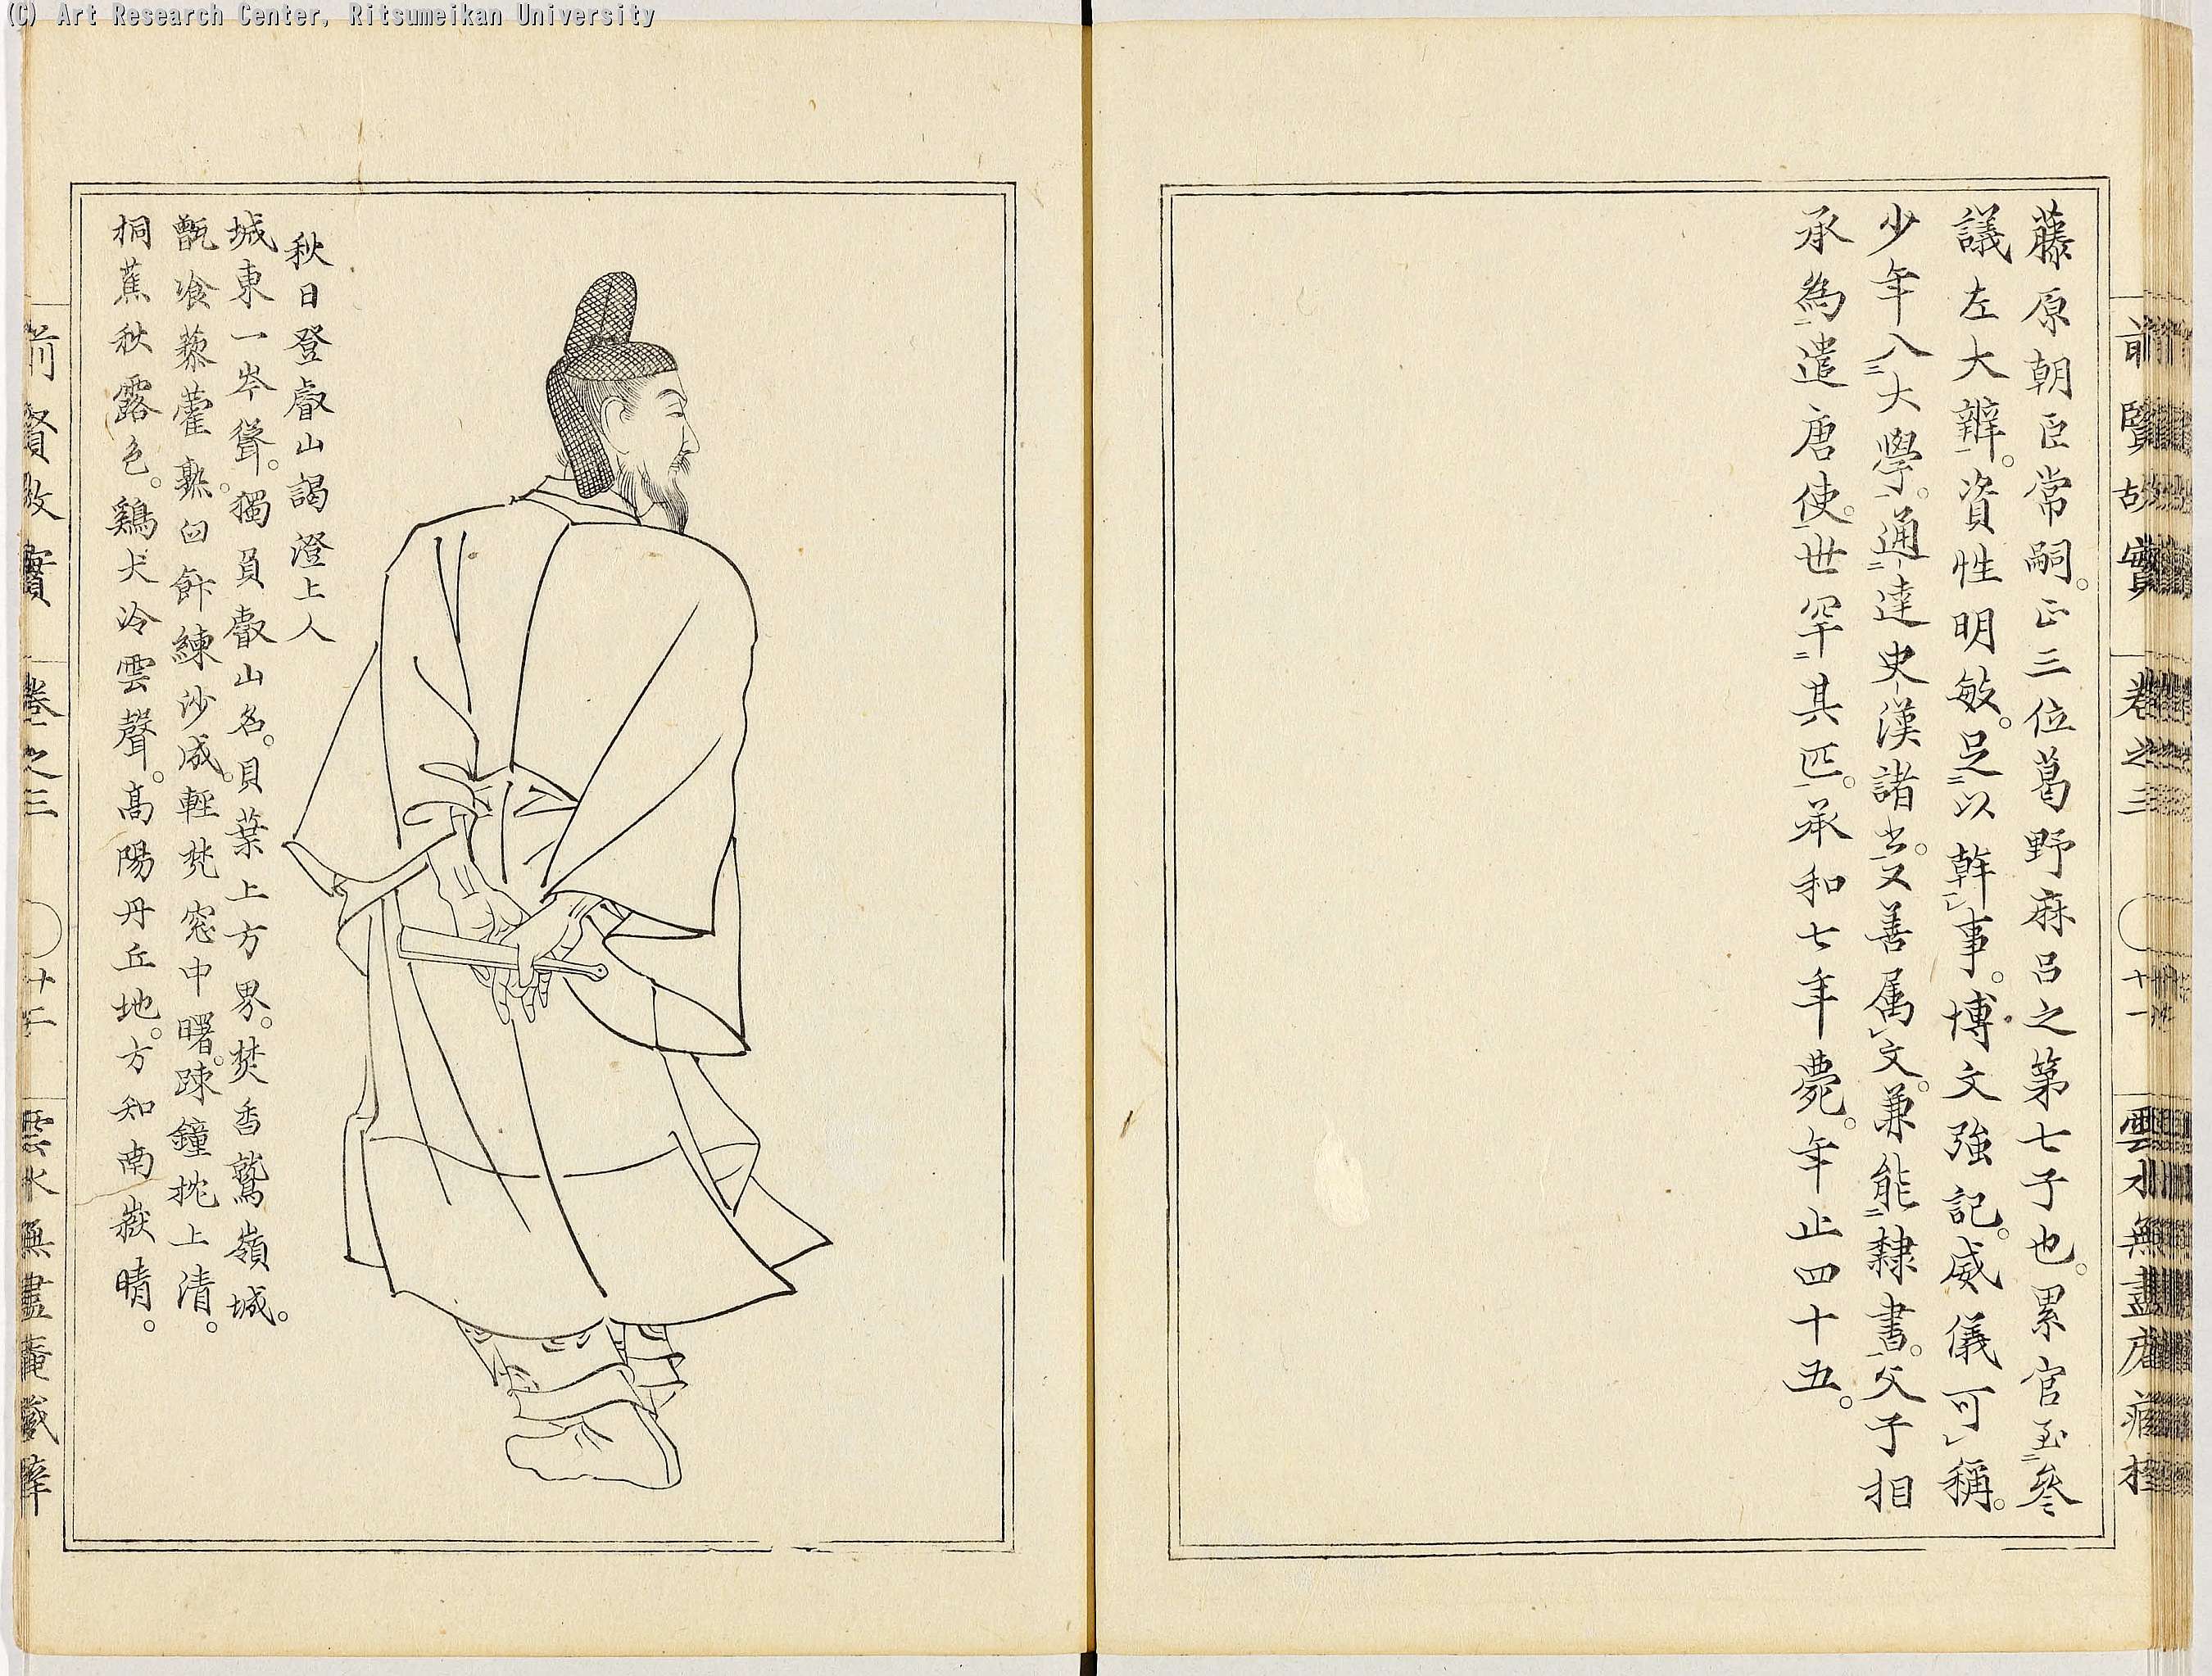 (C) Art Research Center, Ritsumeikan University
前賢故實 卷之三 十一 雲水無盡庵
藤原朝臣常嗣。正三位葛野麻呂之第七子也。累官至參
議左大辨。資性明敏。足以幹事。博文強記。威儀可稱。
少年入大學。通達史漢諸書。又善属文。兼能隸書。父子相
承為遣唐使。世罕其匹。承和七年薨。年止四十五。
秋日登叡山謁澄上人
城東一岑聳。獨負叡山名。貝葉上方界。焚香鷲嶺城。
甑飡藜藿熟。臼飰練沙成。輕梵窓中曙。踈鐘枕上清。
桐蕉秋露色。鷄犬冷雲聲。高陽丹丘地。方知南嶽晴。
前賢故實 卷之三 十二 雲水無盡菴藏